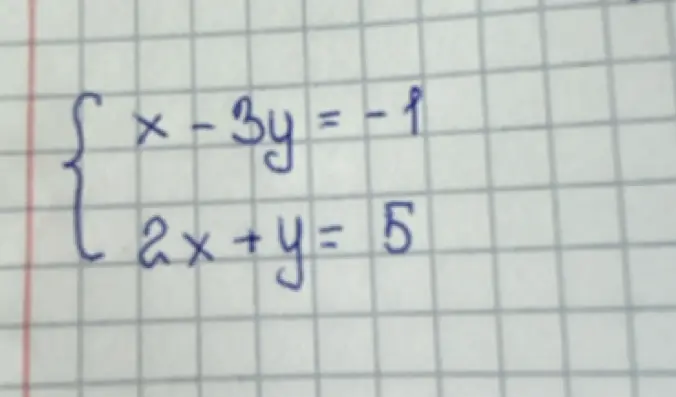 x - 3y = -1
2x + y = 5